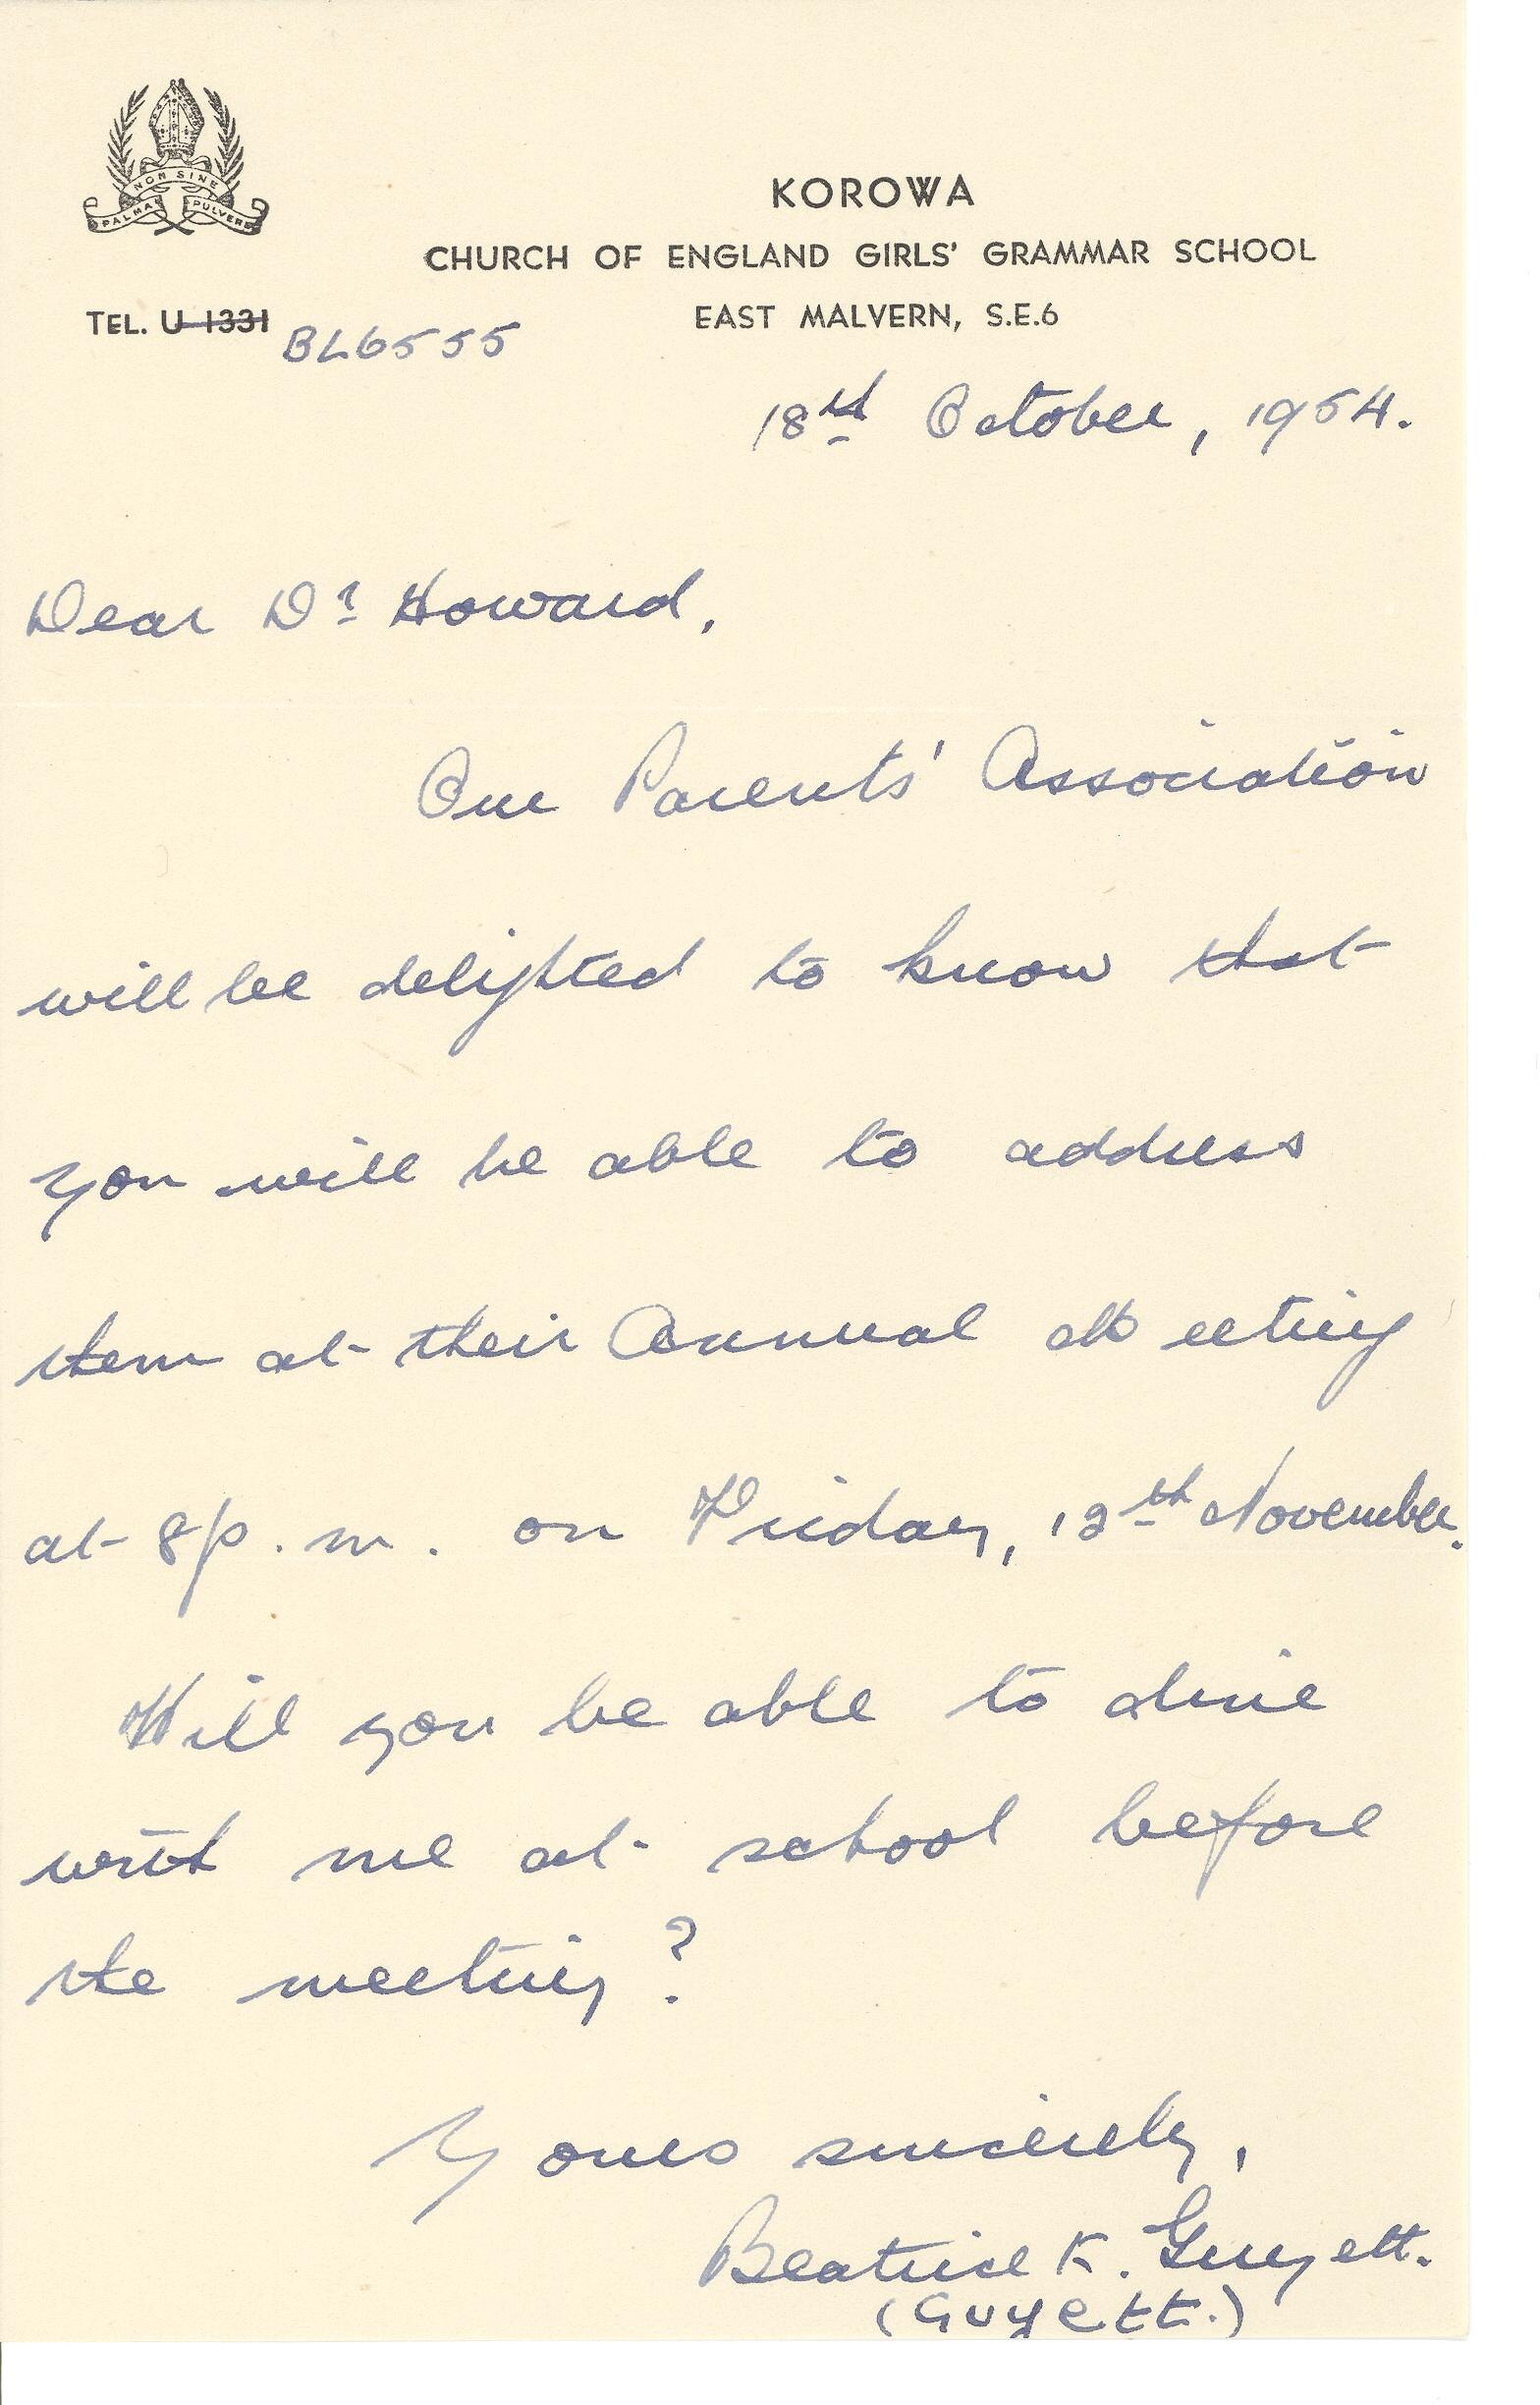 NON SINE
PALMA PULVERE
KOROWA
CHURCH OF ENGLAND GIRLS' GRAMMAR SCHOOL
TEL. U 1331 BL6555
EAST MALVERN, S.E.6
18th October, 1954.
Dear Dr Howard,
Our Parents' Association
will be delighted to know that
you will be able to address
them at their Annual Meeting
at 8p.m. on Friday, 12th November.
Will you be able to dine
with me at school before
the meeting?
Yours sincerely,
Beatrice K. Guyett.
(Guyett.)